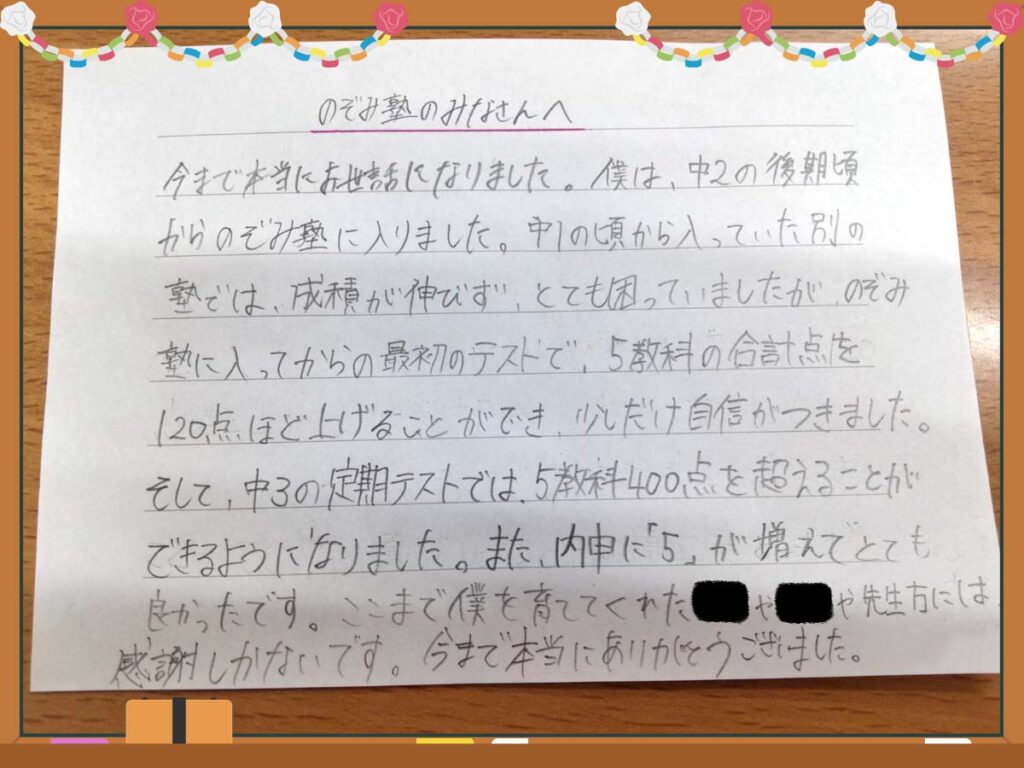 のぞみ塾のみなさんへ
今まで本当にお世話になりました。僕は、中2の後期頃
からのぞみ塾に入りました。中1の頃から入っていた別の
塾では、成積が伸びず、とても困っていましたが、のぞみ
塾に入ってからの最初のテストで、5教科の合計点を
120点ほど上げることができ、少しだけ自信がつきました。
そして、中3の定期テストでは、5教科400点を超えることが
できるようになりました。また、内申に「5」が増えてとても
良かったです。ここまで僕を育ててくれた や や先生方には
感謝しかないです。今まで本当にありがとうございました。